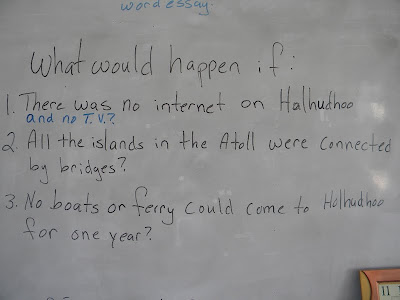 word essay.
What would happen if:
1. There was no internet on Halhudhoo
and no T.V.?
2. All the islands in the Atoll were connected
by bridges?
3. No boats or ferry could come to Holhudhoo
for one year?
11